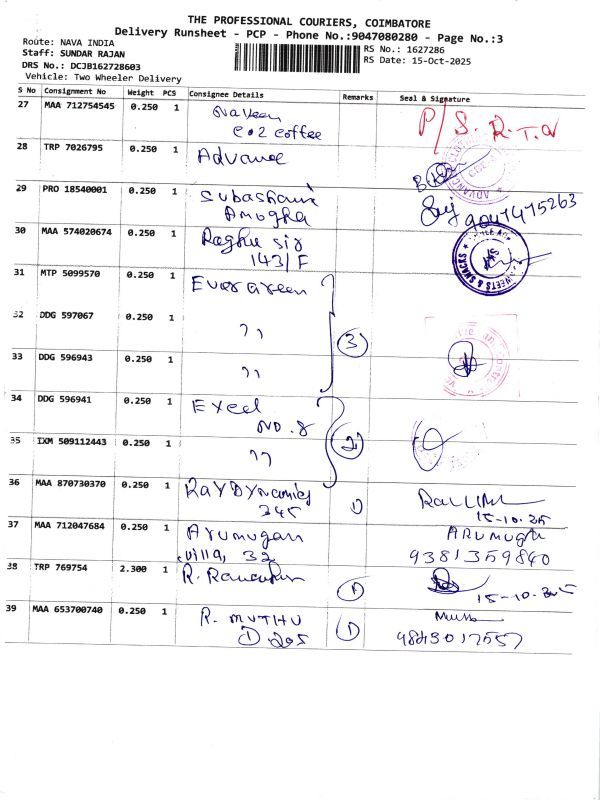 THE PROFESSIONAL COURIERS, COIMBATORE
Delivery Runsheet - PCP - Phone No.:9047080280 - Page No.:3
Route: NAVA INDIA
Staff: SUNDAR RAJAN
DRS No.: DCJB162728603
Vehicle: Two Wheeler Delivery
RS No.: 1627286
RS Date: 15-Oct-2025
S No Consignment No Weight PCS Consignee Details Remarks Seal & Signature
27 MAA 712754545 0.250 1 Naveen P/S. R.T.O
CO2 Coffee
28 TRP 7026795 0.250 1 Advance
29 PRO 18540001 0.250 1 Subashani
Amogha
30 MAA 574020674 0.250 1 Raghu sir
143/F
SWEETS & SNACKS
31 MTP 5099570 0.250 1 Evergreen
32 DDG 597067 0.250 1 ,, 3
33 DDG 596943 0.250 1 ,,
34 DDG 596941 0.250 1 Excel
NO. 8
35 IXM 509112443 0.250 1 ,, 2
36 MAA 870730370 0.250 1 Ray Dynamics 1)
345 15-10-25
37 MAA 712047684 0.250 1 Arumugan ARUMUGA
villa, 32 9381359840
38 TRP 769754 2.300 1 R. 1
15-10-2025
39 MAA 653700740 0.250 1 R. MUTHU 1
D 205 9843017557